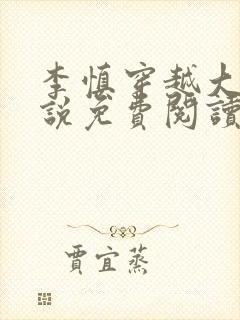 李慎穿越大
說免費閱讀
賈宜蒸